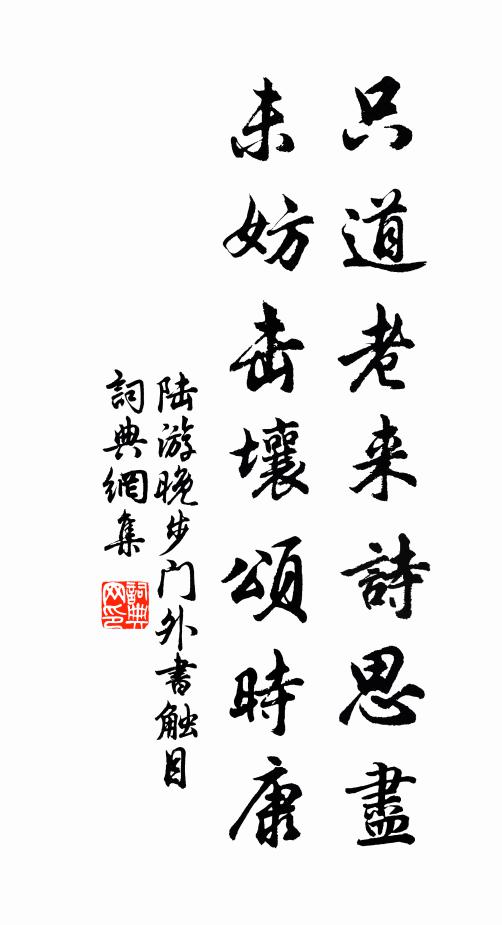 只道老来詩思盡
未妨击壤頌時康
陆游晚步门外書触目
詞典網集
詞典網印